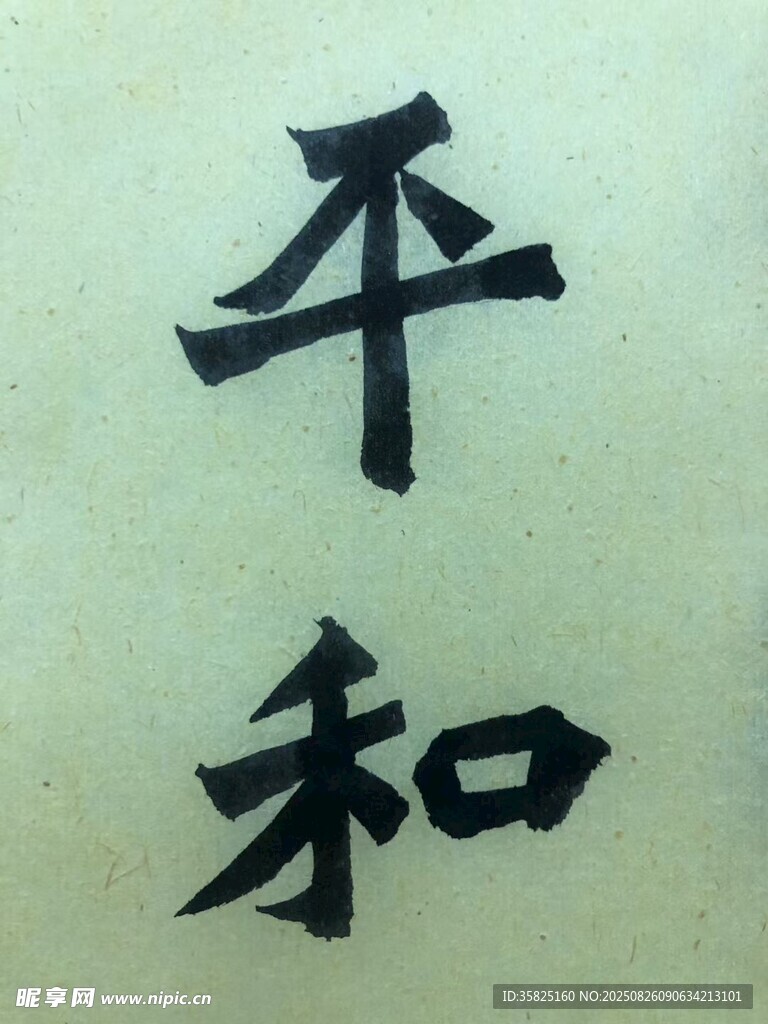 平
和
昵享网 www.nipic.cn
ID:35825160 NO:20250826090634213101